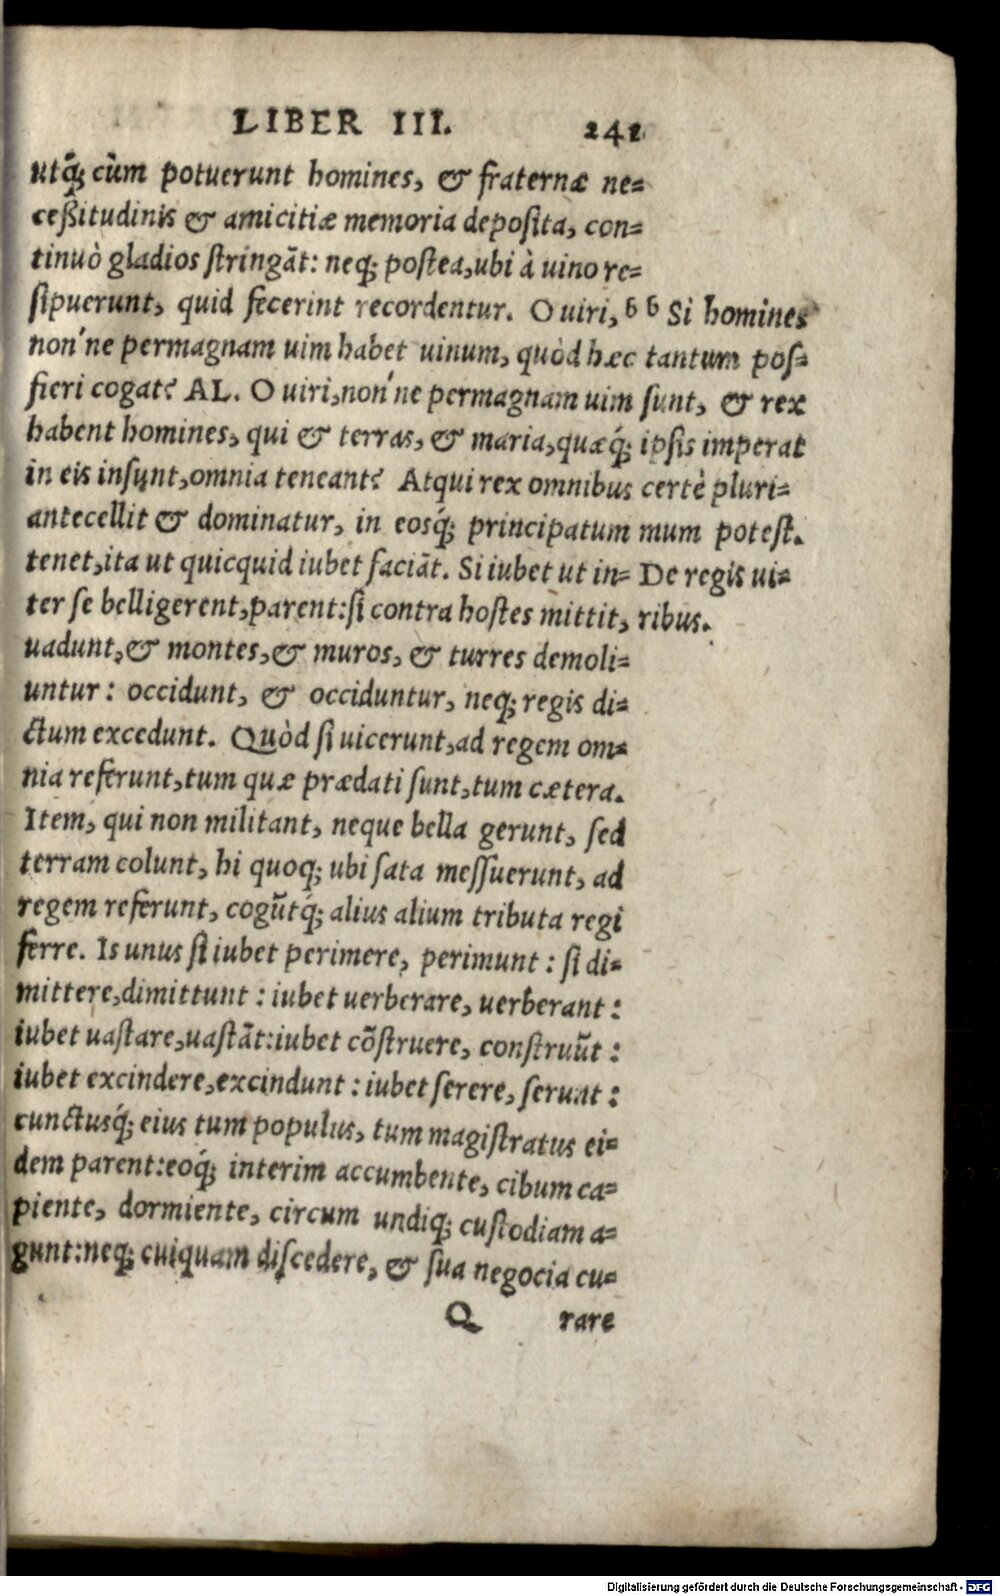 LIBER III. 241
utq́; cùm potuerunt homines, & fraternæ ne=
ceßitudinis & amicitiæ memoria deposita, con=
tinuò gladios stringãt: neq; postea, ubi à uino re=
sipuerunt, quid fecerint recordentur. O uiri,
non'ne permagnam uim habet uinum, quòd hæc
fieri cogat? AL. O uiri, non'ne permagnam uim
habent homines, qui & terras, & maria, quæq́;
in eis insunt, omnia teneant? Atqui rex omnibus
antecellit & dominatur, in eosq́; principatum
tenet, ita ut quicquid iubet faciãt. Si iubet ut in=
ter se belligerent, parent: si contra hostes mittit,
uadunt, & montes, & muros, & turres demoli=
untur: occidunt, & occiduntur, neq; regis di=
ctum excedunt. Quòd si uicerunt, ad regem om=
nia referunt, tum quæ prædati sunt, tum cætera.
Item, qui non militant, neque bella gerunt, sed
terram colunt, hi quoq; ubi sata messuerunt, ad
regem referunt, cogũtq́; alius alium tributa regi
ferre. Is unus si iubet perimere, perimunt: si di=
mittere, dimittunt: iubet uerberare, uerberant:
iubet uastare, uastãt: iubet cõstruere, construũt:
iubet excindere, excindunt: iubet serere, serunt:
cunctusq́; eius tum populus, tum magistratus ei=
dem parent: eoq́; interim accumbente, cibum ca=
piente, dormiente, circum undiq; custodiam a=
gunt: neq; cuiquam discedere, & sua negocia cu=
Q rare
b b Si homines
tantum pos=
sunt, & rex
ipsis imperat
certè pluri=
mum potest.
De regis ui=
ribus.
Digitalisierung gefördert durch die Deutsche Forschungsgemeinschaft - DFG